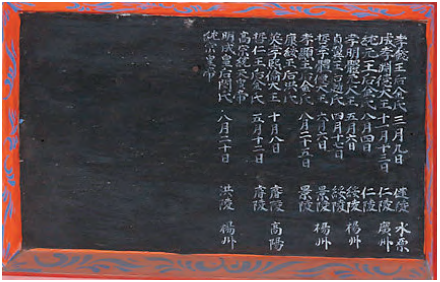 孝懿王后金氏 三月九日 健陵 水原
大王 十一月十三日 仁陵 廣州
純元王后金氏 八月四日 仁陵
孝明 大王 五月六日 綏陵 楊州
王后趙氏 四月十七日 綏陵
哲孝 大王 六月六日 景陵 楊州
孝顯王后金氏 八月二十五日 景陵
王后洪氏
英孝熙倫大王 十 月八日 睿陵 高陽
哲仁王后金氏 五月十二日 睿陵
高宗統天 皇帝
明成皇后閔氏 八月二十日 洪陵 楊州
純宗皇帝